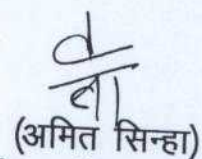 (अमित सिन्हा)